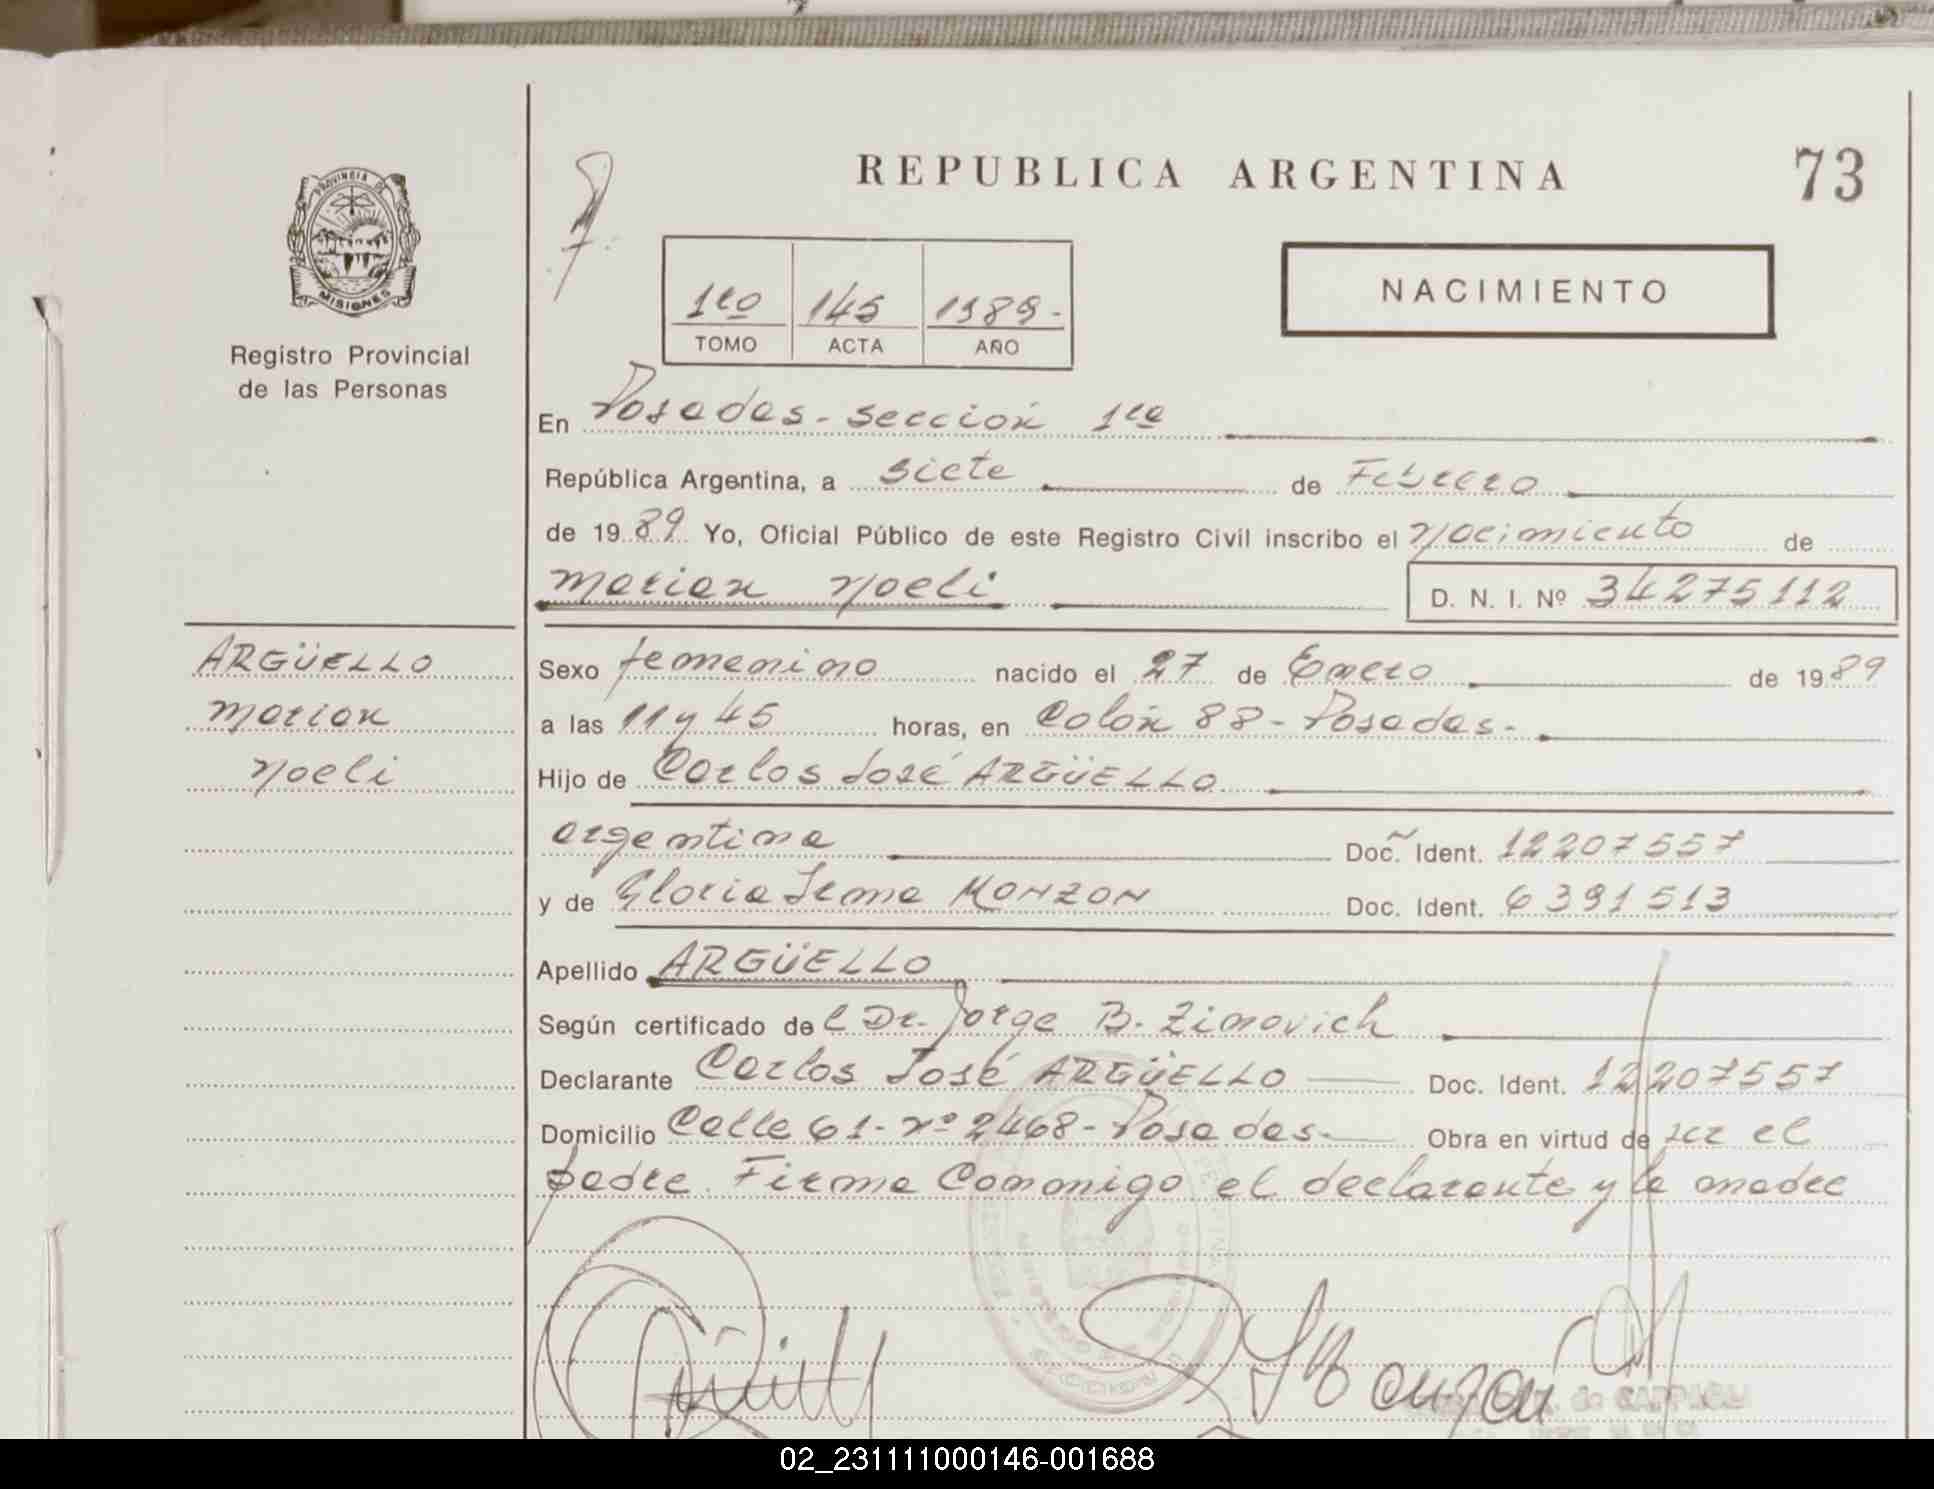 REPUBLICA ARGENTINA
73
PROVINCIA DE
MISIONES
Registro Provincial
de las Personas
1ro 145 1989.-
TOMO ACTA AÑO
NACIMIENTO
En Posadas - sección 1ra
República Argentina, a siete de Febrero
de 1989 Yo, Oficial Público de este Registro Civil inscribo el nacimiento de
Marian Noeli D. N. I. Nº 34275112
ARGÜELLO
Marian
Noeli
Sexo femenino nacido el 27 de Enero de 1989
a las 11 y 45 horas, en Colón 88 - Posadas.-
Hijo de Carlos José ARGÜELLO
argentina Doc. Ident. 12207557
y de Gloria Irma MONZON Doc. Ident. 6391513
Apellido ARGÜELLO
Según certificado del Dr. Jorge B. Zimovich
Declarante Carlos José ARGÜELLO Doc. Ident. 12207557
Domicilio Calle 61 - nº 2468 - Posadas.- Obra en virtud de ser el
padre. Firma Conmigo el declarante y la madre
02_231111000146-001688